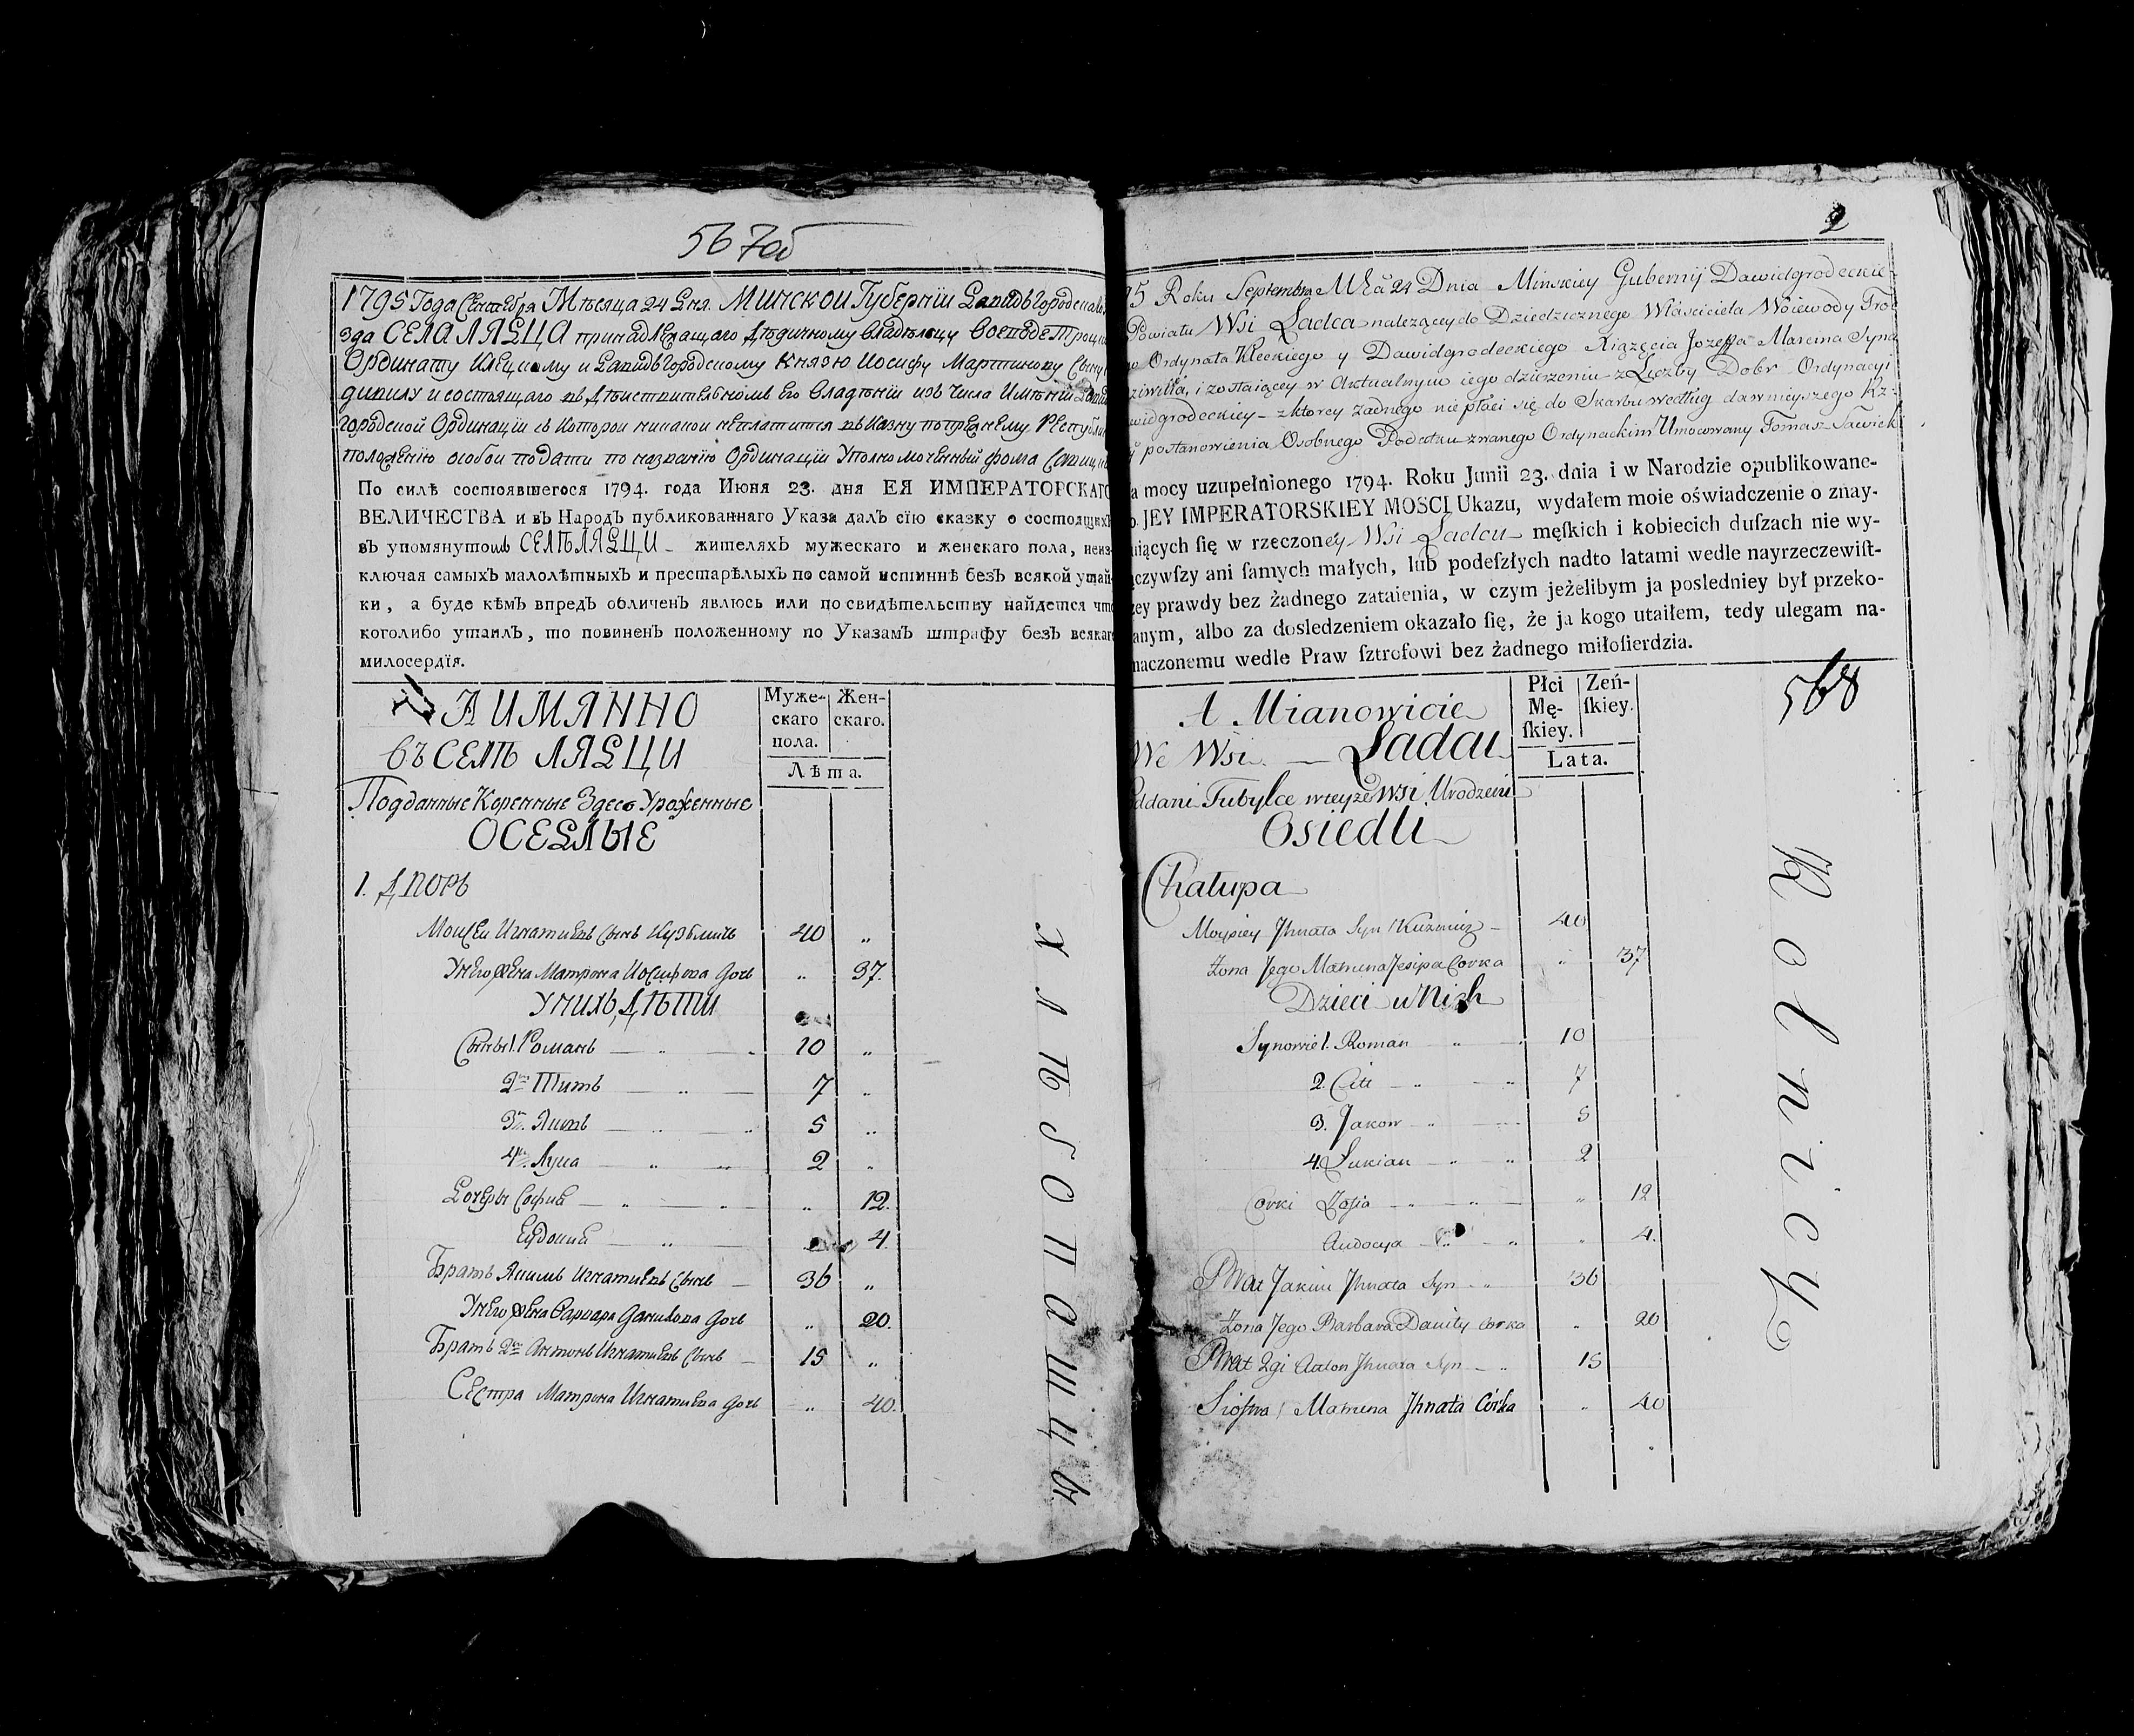 567об
1795 Года Сентебря Мѣсяца 24 Дня. Минской Губерніи Давидъгородскаго
зда СЕЛА ЛЯДЦА принадлежащаго Дѣдичному Владѣльцу Воеводе Троцк
Ординату Клецкому и Давидъгородскому Князю Иосифу Мартинову Сыну
дивилу и состоящаго въ Дѣиствительномъ Его Владѣніи изъ числа Имѣніи Давид
городской Ординаціи съ которой никакой неплатится въ Казну попрежнему Республик
положенію особой подати по названію Ординаціи Уполномоченный Фома Савицк
По силѣ состоявшегося 1794. года Июня 23. дня ЕЯ ИМПЕРАТОРСКАГО
ВЕЛИЧЕСТВА и въ Народъ публикованнаго Указа далъ сїю сказку о состоящихъ
въ упомянутомъ СЕЛѢ ЛЯДЦИ - жителяхъ мужескаго и женскаго пола, неиз-
ключая самыхъ малолѣтныхъ и престарѣлыхъ по самой истиннѣ безъ всякой утай-
ки, а буде кѣмъ впредъ обличенъ явлюсь или по свидѣтельству найдется что
коголибо утаилъ, то повиненъ положенному по Указамъ штрафу безъ всякаго
милосердїя.
А ИМЯННО
въ СЕЛѢ ЛЯДЦИ
Муже-скаго пола. Жен-скаго.
Лѣта.
Подданные Коренные Здесь Уроженные
ОСЕДЛЫЕ
1. ДВОРЪ
Моисеи Игнатиевъ Сынъ Кузьмичъ 40 „
У него Жена Матрона Иосифова дочь „ 37.
У нихъ ДѢТИ
Сыны 1. Романъ 10 „
2й Титъ 7 „
3й Якивъ 5 „
4й Лука 2 „
Дочеры София „ 12.
Евдокия 4.
Братъ Якимъ Игнатиевъ Сынъ 36 „
У него Жена Варвара Данилова дочь „ 20.
Братъ 2й Антонъ Игнатиевъ Сынъ 15 „
Сестра Матрона Игнатиева дочь „ 40.
Хлѣбопашцы
2
95 Roku Septembra Mca 24 Dnia Minskiey Gubernij Dawidgrodeckie-
Powiatu Wsi Ladca należącey do Dziedzicznego Właściciela Woiewody Troc
o Ordynata Kleckiego y Dawidgrodeckiego Xiązęcia Jozeffa Marcina Syna
ziwiłła, i zostaiącey w Aktualnym iego dzierzeniu z Liczby Dobr Ordynacyi
widgrodeckiey - z ktorey żadnego nie płaci się do Skarbu według dawnieyszego Rz-
y postanowienia Osobnego Podatku zwanego Ordynackim Umocowany Tomasz Sawick
a mocy uzupełnionego 1794. Roku Junii 23. dnia i w Narodzie opublikowane-
o JEY IMPERATORSKIEY MOSCI Ukazu, wydałem moie oświadczenie o znay-
uiących się w rzeczoney Wsi Ladcu męſkich i kobiecich duſzach nie wy-
ączywſzy ani ſamych małych, lub podeſzłych nadto latami wedle nayrzeczewiſt-
zey prawdy bez żadnego zataienia, w czym jeżelibym ja posledniey był przeko-
anym, albo za dosledzeniem okazało ſię, że ja kogo utaiłem, tedy ulegam na-
naczonemu wedle Praw ſztrofowi bez żadnego miłoſierdzia.
A Mianowicie
We Wsi — Ladcu
Płci Mę-ſkiey. Zeń-ſkiey.
Lata.
568
ddani Tubylce w teyże Wsi Urodzeni
Osiedli
Chałupa
Moysiey Jhnata Syn Kuzmicz - 40
Żona Jego Matruna Jesipa Corka „ 37
Dzieci u Nich
Synowie 1. Roman 10
2. Cit 7
3. Jakow 5
4. Lukian 2
Corki Zosia „ 12
Audocya „ 4.
Brat Jakim Jhnata Syn 36
Żona Jego Barbara Daniły corka „ 20
Brat 2gi Anton Jhnata Syn 15
Siostra Matruna Jhnata Córka „ 40
Rolnicy